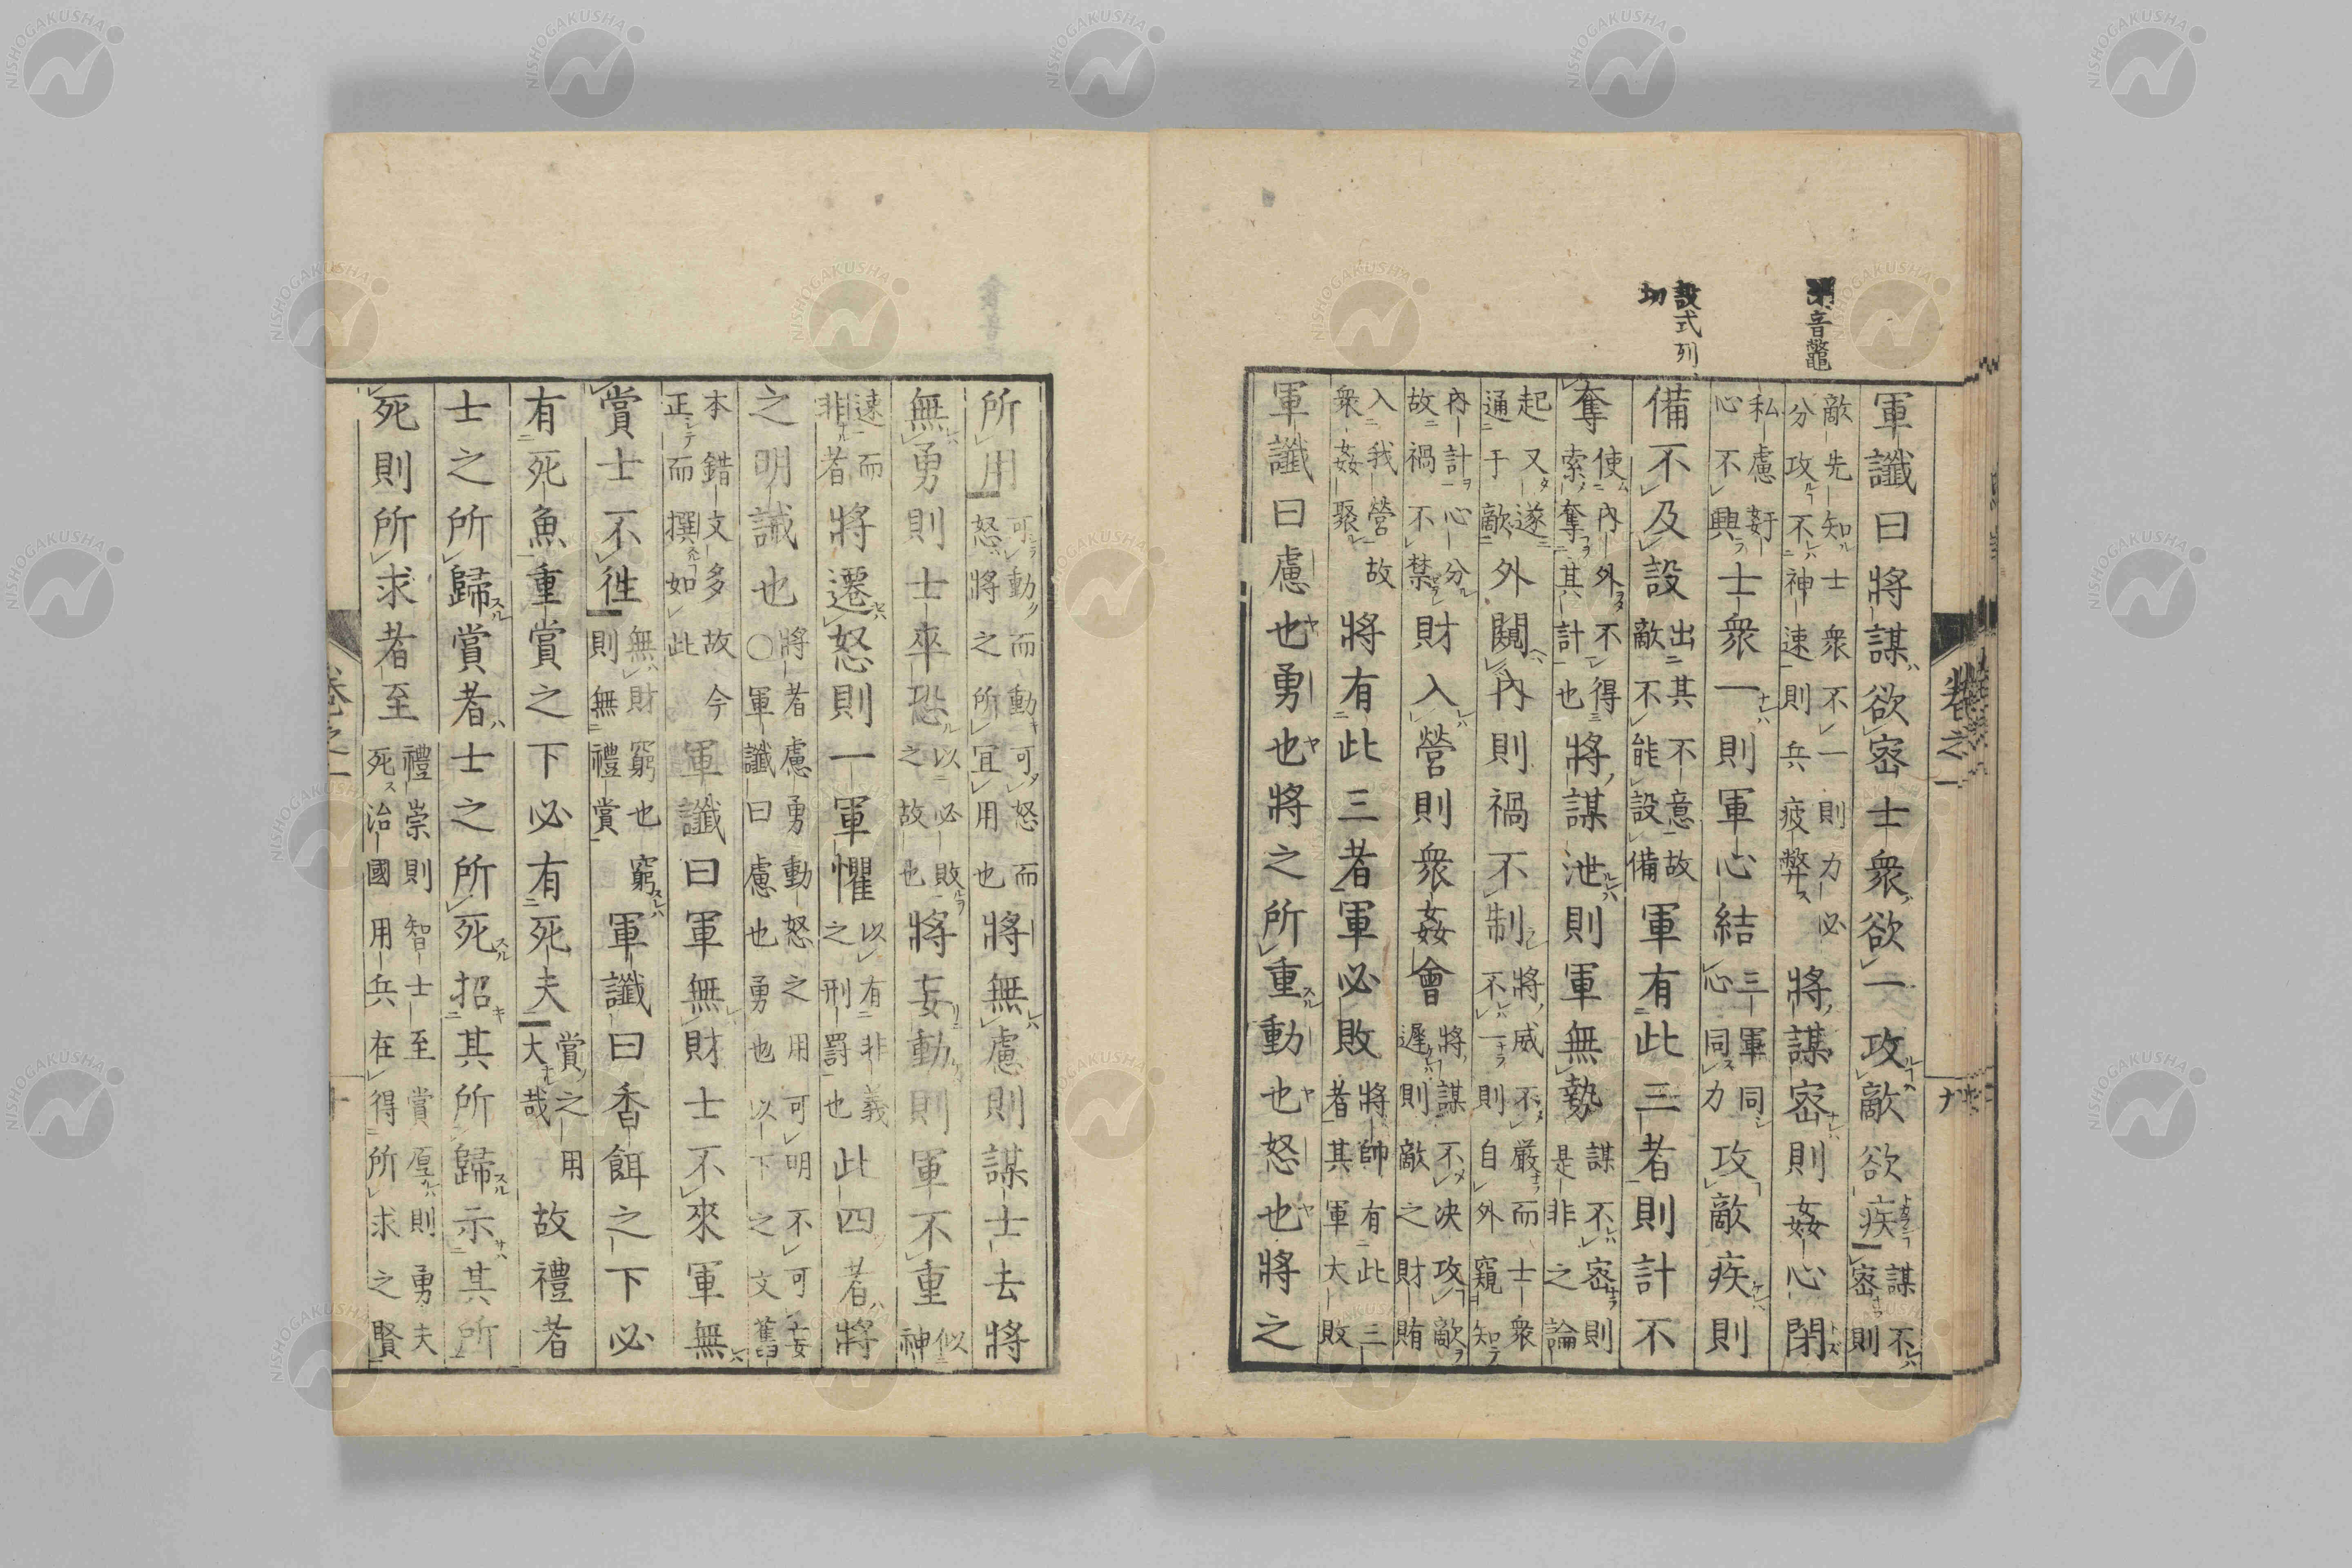 閉音鼈
設式列
切
軍讖曰將謀欲宻士衆欲一攻敵欲疾謀不宻則
敵先知士衆不一則力必分攻不神速則兵疲弊將謀宻則姦心閉
私慮姧心不興士衆一則軍心結三軍同心同力攻敵疾則
備不及設出其不意故敵不能設備軍有此三者則計不
奪使內外不得索奪其計也將謀泄則軍無勢謀不宻則是非之論
起又遂通于敵外闚內則禍不制將威不嚴而士衆不一則自外窺知
內計心分故禍不禁財入營則衆姦會將謀不决攻敵遲則敵之財賄
入我營故衆姦聚將有此三者軍必敗將帥有此三者其軍大敗
軍讖曰慮也勇也將之所重動也怒也將之
卷之一
九
所用可動而動可怒而怒將之所宜用也將無慮則謀士去將
無勇則士卒恐以必敗之故也將妄動則軍不重似神
速而非者將遷怒則一軍懼以有非義之刑罰也此四者將
之明誡也將者慮勇動怒之用可明不可妄〇軍讖曰慮也勇也以下之文舊
本錯文多故今正而撰如此軍讖曰軍無財士不來軍無
賞士不徃無財窮也則無禮賞窮軍讖曰香餌之下必
有死魚重賞之下必有死夫賞之用大哉故禮者
士之所歸賞者士之所死招其所歸示其所
死則所求者至禮崇則智士至賞厚則勇夫死治國用兵在得所求之賢